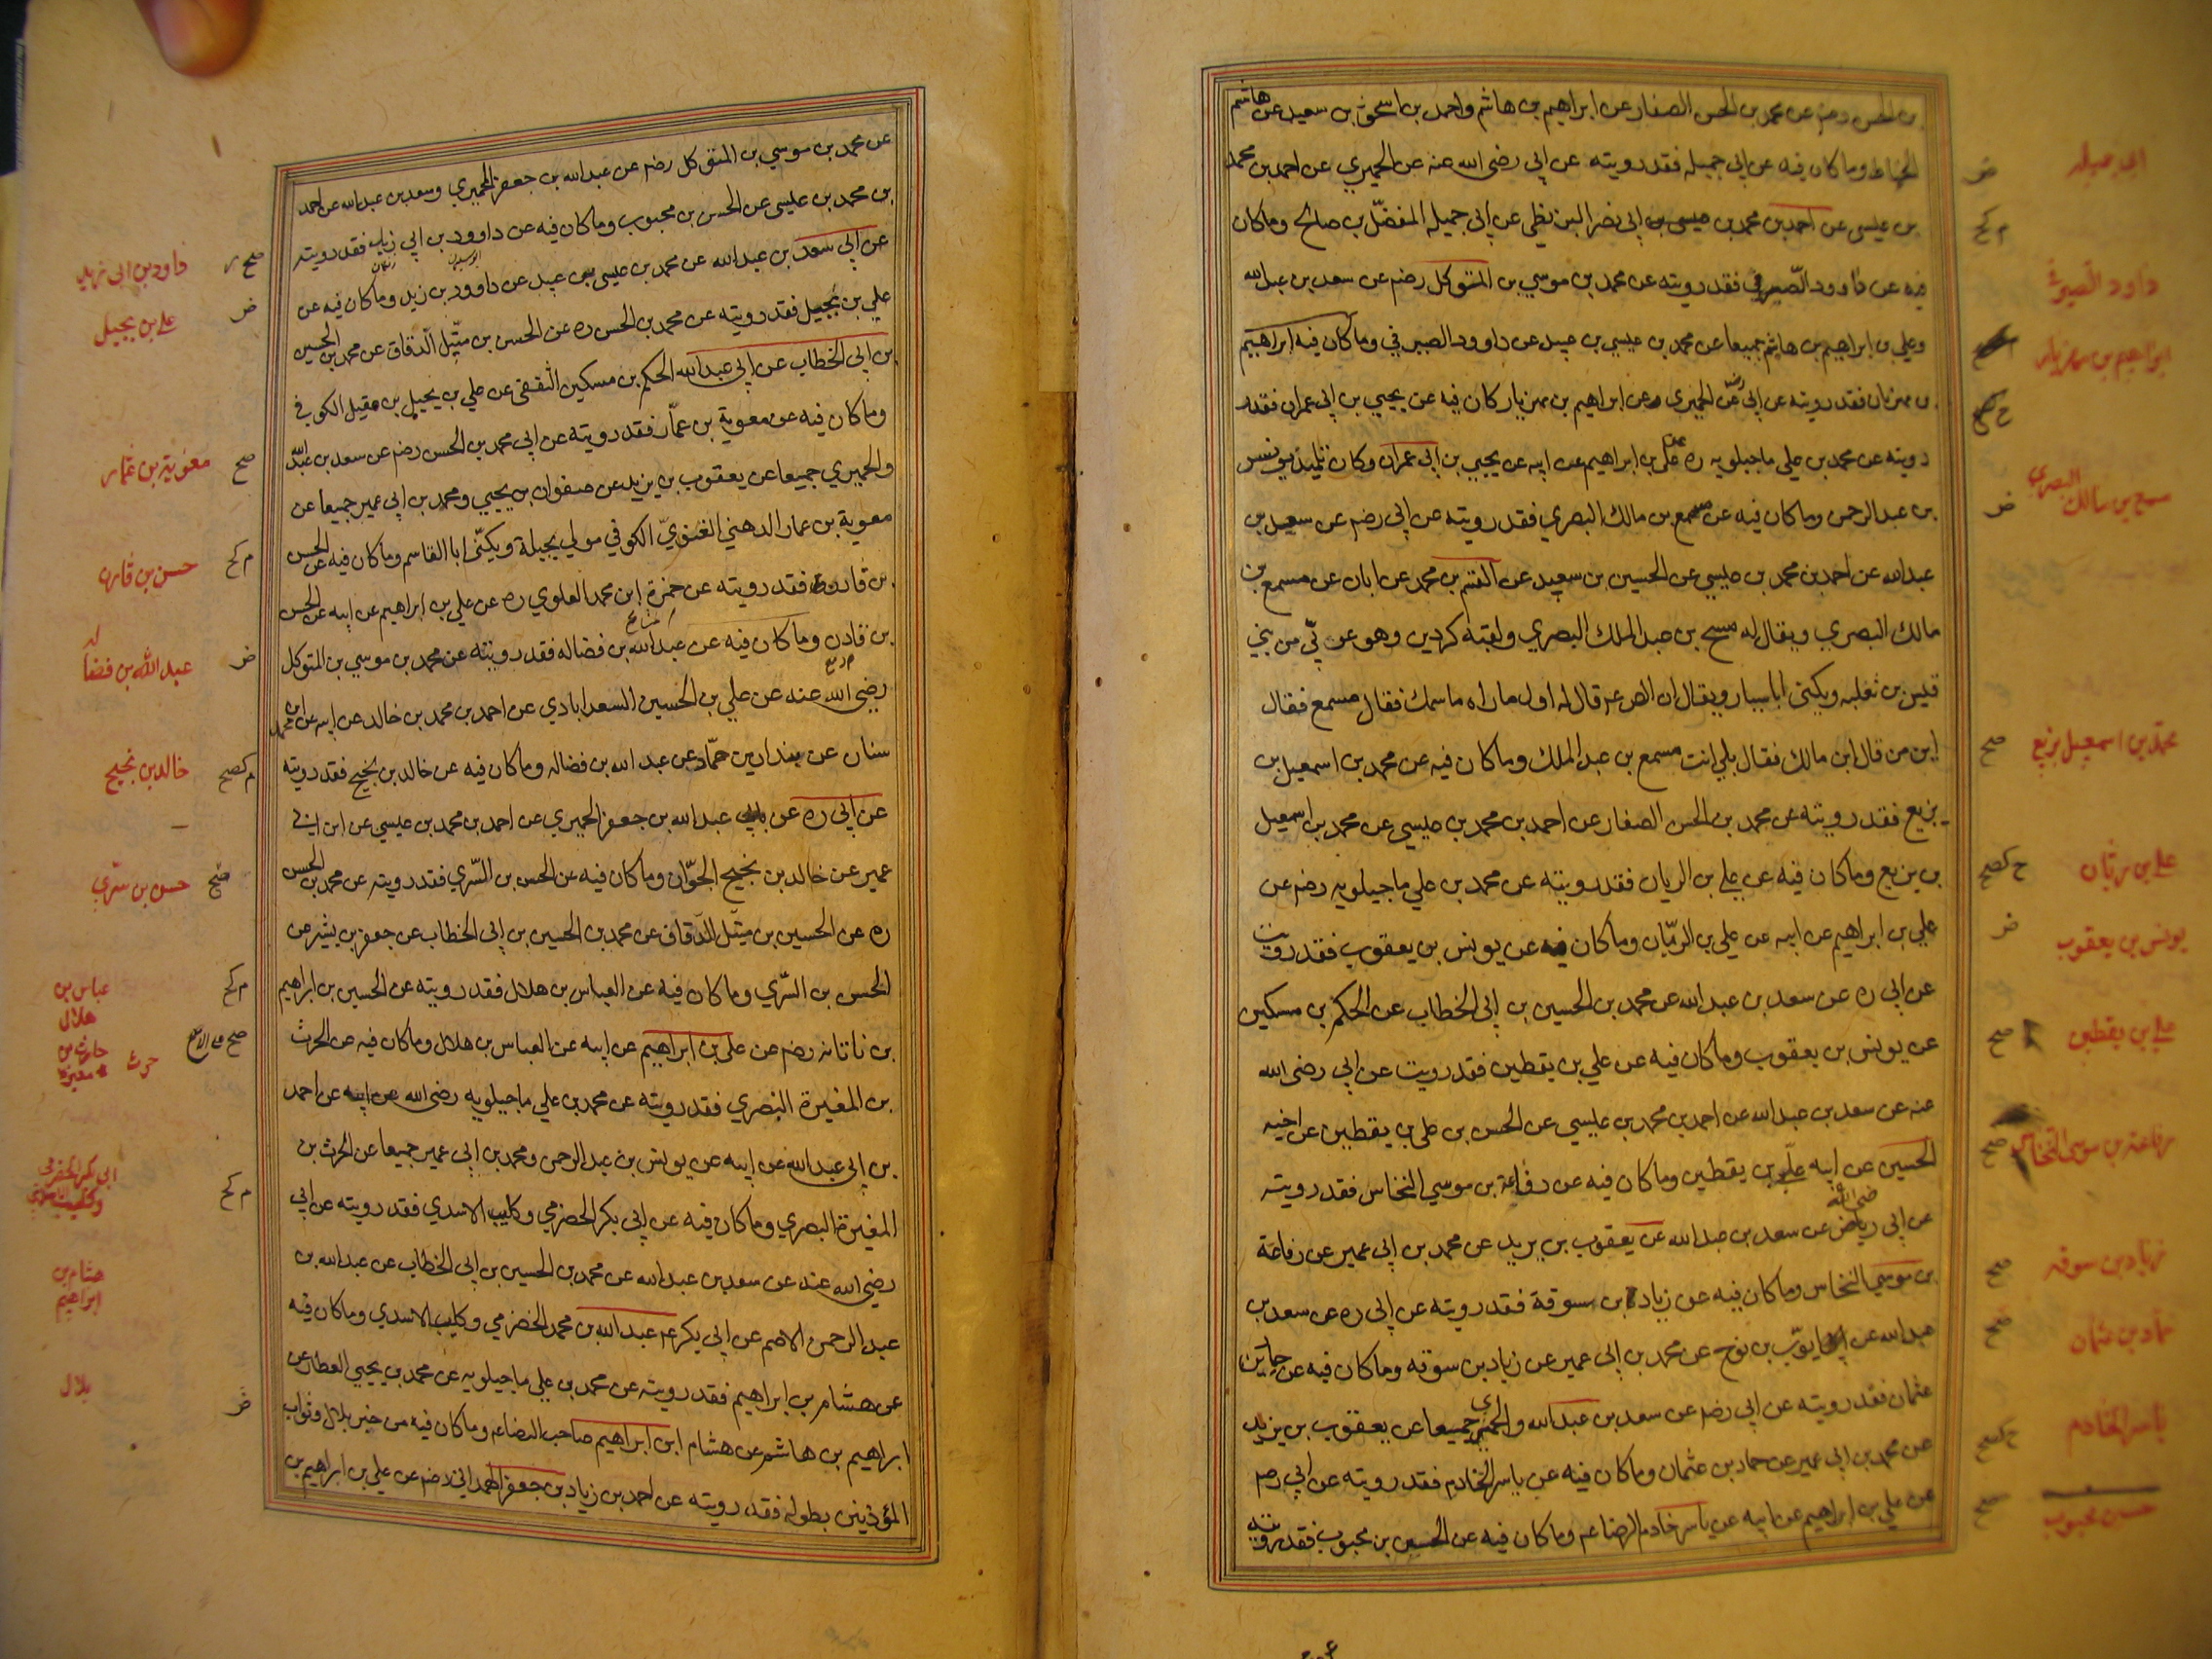 بن الحسن رضه عن محمد بن الحسن الصفار عن ابراهيم بن هاشم واحمد بن اسحق بن سعيد عن هاشم
الحناط وما كان فيه عن ابي جميله فقد رويته عن ابي رضى الله عنه عن الحميري عن احمد بن محمد
بن عيسى عن احمد بن محمد بن عيسى بن ابي نصر البزنطي عن ابي جميله المفضّل بن صالح وما كان
فيه عن داوود الصّيرفي فقد رويته عن محمد بن موسي بن المتوكل رضه عن سعد بن عبد الله
وعلي بن ابراهيم بن هاشم جميعا عن محمد بن عيسي بن عبيد عن داوود الصيرفي وما كان فيه ابراهيم
بن مهزيار فقد رويته عن ابي رضه عن الحميري عن ابراهيم بن مهزيار كان فيه عن يحيي بن ابي عمران فقد
رويته عن محمد بن علي ماجيلويه ره عن علي بن ابراهيم عن ابيه عن يحيي بن ابي عمران وكان تلميذ يونس
بن عبد الرحمن وما كان فيه عن مسمع بن مالك البصري فقد رويته عن ابي رضه عن سعد بن
عبد الله عن احمد بن محمد بن عيسي عن الحسين بن سعيد عن القسم بن محمد عن ابان عن مسمع بن
مالك البصري ويقال له مسمع بن عبد الملك البصري ولقبه كردين وهو عربّي من بني
قيس بن ثعلبه ويكنى ابا سيار ويقال ان الص ع قال له اول ما راه ما سمك فقال مسمع فقال
ابن من قال ابن مالك فقال بلي انت مسمع بن عبد الملك وما كان فيه عن محمد بن اسمعيل بن
بزيع فقد رويته عن محمد بن الحسن الصفار عن احمد بن محمد بن عيسي عن محمد بن اسمعيل
بن بزيع وما كان فيه عن علي بن الريان فقد رويته عن محمد بن علي ماجيلويه رضه عن
علي بن ابراهيم عن ابيه عن علي بن الريّان وما كان فيه عن يونس بن يعقوب فقد رويت
عن ابي ره عن سعد بن عبد الله عن محمد بن الحسين بن ابي الخطاب عن الحكم بن مسكين
عن يونس بن يعقوب وما كان فيه عن علي بن يقطين فقد رويت عن ابي رضى الله
عنه عن سعد بن عبد الله عن احمد بن محمد بن عيسي عن الحسن بن علي بن يقطين عن اخيه
الحسين عن ابيه علي بن يقطين وما كان فيه عن رفاعة بن موسي النخاس فقد رويته
عن ابي رضى الله عنه عن سعد بن عبد الله عن يعقوب بن يزيد عن محمد بن ابي عمير عن رفاعة
بن موسي النخاس وما كان فيه عن زياد بن سوقة فقد رويته عن ابي ره عن سعد بن
عبد الله عن ايوّب بن نوح عن محمد بن ابي عمير عن زياد بن سوقه وما كان فيه عن حماد بن
عثمان فقد رويته عن ابي رضه عن سعد بن عبد الله والحميري جميعا عن يعقوب بن يزيد
عن محمد بن ابي عمير عن حماد بن عثمان وما كان فيه عن ياسر الخادم فقد رويته عن ابي رضه
عن علي بن ابراهيم عن ابيه عن ياسر خادم الرضا ع وما كان فيه عن الحسن بن محبوب فقد رويته
ابي جميله
داود الصيرفي
ابراهيم بن مهزيار
مسمع بن مالك البصري
محمد بن اسمعيل بزيع
علي بن ريان
يونس بن يعقوب
علي بن يقطين
رفاعة بن موسى النخاس
زياد بن سوقه
حماد بن عثمان
ياسر الخادم
حسن محبوب
عن محمد بن موسي بن المتوكل رضه عن عبد الله بن جعفر الحميري وسعد بن عبد الله عن احمد
بن محمد بن عليسى عن الحسن بن محبوب وما كان فيه عن داوود بن ابي زيد فقد رويته
عن ابي سعد بن عبد الله عن محمد بن عليسى بن عبيد عن داوود بن زيد وما كان فيه عن
علي بن بجيل فقد رويته عن محمد بن الحسن ره عن الحسن بن متّيل الدقاق عن محمد بن الحسين
بن ابي الخطاب عن ابي عبد الله الحكم بن مسكين الثقفى عن علي بن بجيل بن عقيل الكوفي
وما كان فيه عن معوية بن عمّار فقد رويته عن ابي محمد بن الحسن رضه عن سعد بن عبد الله
والحميري جميعا عن يعقوب بن يزيد عن صفوان بن يحيي ومحمد بن ابي عمير جميعا عن
معوية بن عمار الدهني الغنويّ الكوفي مولي بجيلة ويكنّى ابا القاسم وما كان فيه عن الحسن
بن قارون فقد رويته عن حمزة ابن محمد العلوي ره عن علي بن ابراهيم عن ابيه عن الحسن
بن قارن وما كان فيه عن عبد الله بن فضاله فقد رويته عن محمد بن موسي بن المتوكل
رضي الله عنه عن علي بن الحسين السعد ابادي عن احمد بن محمد بن خالد عن ابيه عن محمد بن
سنان عن بندار بن حمّاد عن عبد الله بن فضاله وما كان فيه عن خالد بن نجيح فقد رويته
عن ابي ره عن عبد الله بن جعفر الحميري عن احمد بن محمد بن عليسي عن ابن ابي
عمير عن خالد بن نجيح الجوّان وما كان فيه عن الحسن بن السّري فقد رويته عن محمد بن الحسن
ره عن الحسين بن متّيل الدّقاق عن محمد بن الحسين بن ابي الخطاب عن جعفر بن بشير عن
الحسن بن السّري وما كان فيه عن العباس بن هلال فقد رويته عن الحسين بن ابراهيم
بن ناتانه رضه عن علي بن ابراهيم عن ابيه عن العباس بن هلال وما كان فيه عن الحرث
بن المغيرة النصري فقد رويته عن محمد بن علي ماجيلويه رضى الله عن ابيه عن احمد
بن ابي عبد الله عن ابيه عن يونس بن عبد الرحمن ومحمد بن ابي عمير جميعا عن الحرث بن
المغيرة البصري وما كان فيه عن ابي بكر الحضرمي وكليب الاسدي فقد رويته عن ابي
رضي الله عنه عن سعد بن عبد الله عن محمد بن الحسين بن ابي الخطاب عن عبد الله بن
عبد الرحمن الاصم عن ابي بكر عبد الله بن محمد الحضرمي وكليب الاسدي وما كان فيه
عن هشام بن ابراهيم فقد رويته عن محمد بن علي ماجيلويه عن محمد بن يحيي العطار عن
ابراهيم بن هاشم عن هشام ابن ابراهيم صاحب الرضا ع وما كان فيه من خبر بلال وثواب
المؤذنين بطوله فقد رويته عن احمد بن زياد بن جعفر الهمداني رضه عن علي بن ابراهيم بن
داود بن ابي زيد
علي بن بجيل
معوية بن عمار
حسن بن قارن
عبد الله بن فضاله
خالد بن نجيح
حسن بن سري
عباس بن هلال
حارث بن مغيرة
ابي بكر الحضرمي
هشام بن ابراهيم
بلال